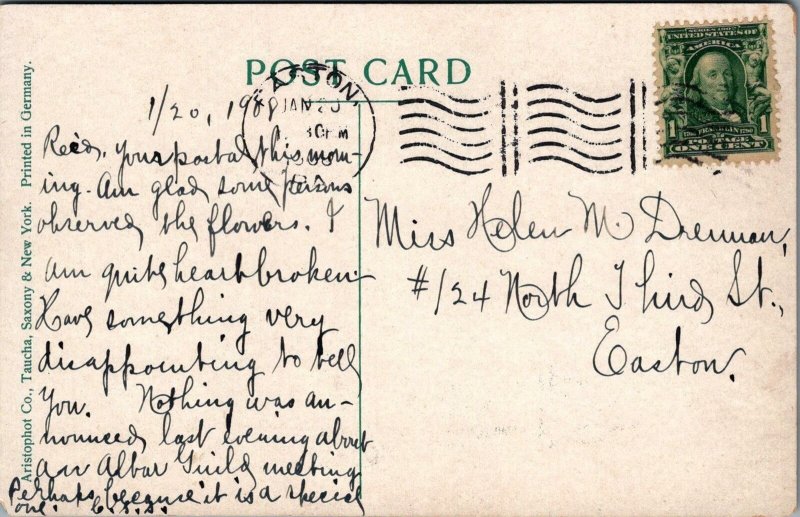 POST CARD
Aristophot Co., Taucha, Saxony & New York. Printed in Germany.
EASTON,
JAN 20
SERIES 1902
UNITED STATES OF
AMERICA
1 FRANKLIN 1
ONE CENT
1/20, 1908
Recd. your postal this morn-
ing. Am glad some persons
observed the flowers. I
am quite heartbroken.
Have something very
disappointing to tell
you. Nothing was an-
nounced last evening about
an Altar Guild meeting
Perhaps because it is a special
one. C.S.S.
Miss Helen M. Drennan,
#124 North Third St.,
Easton.